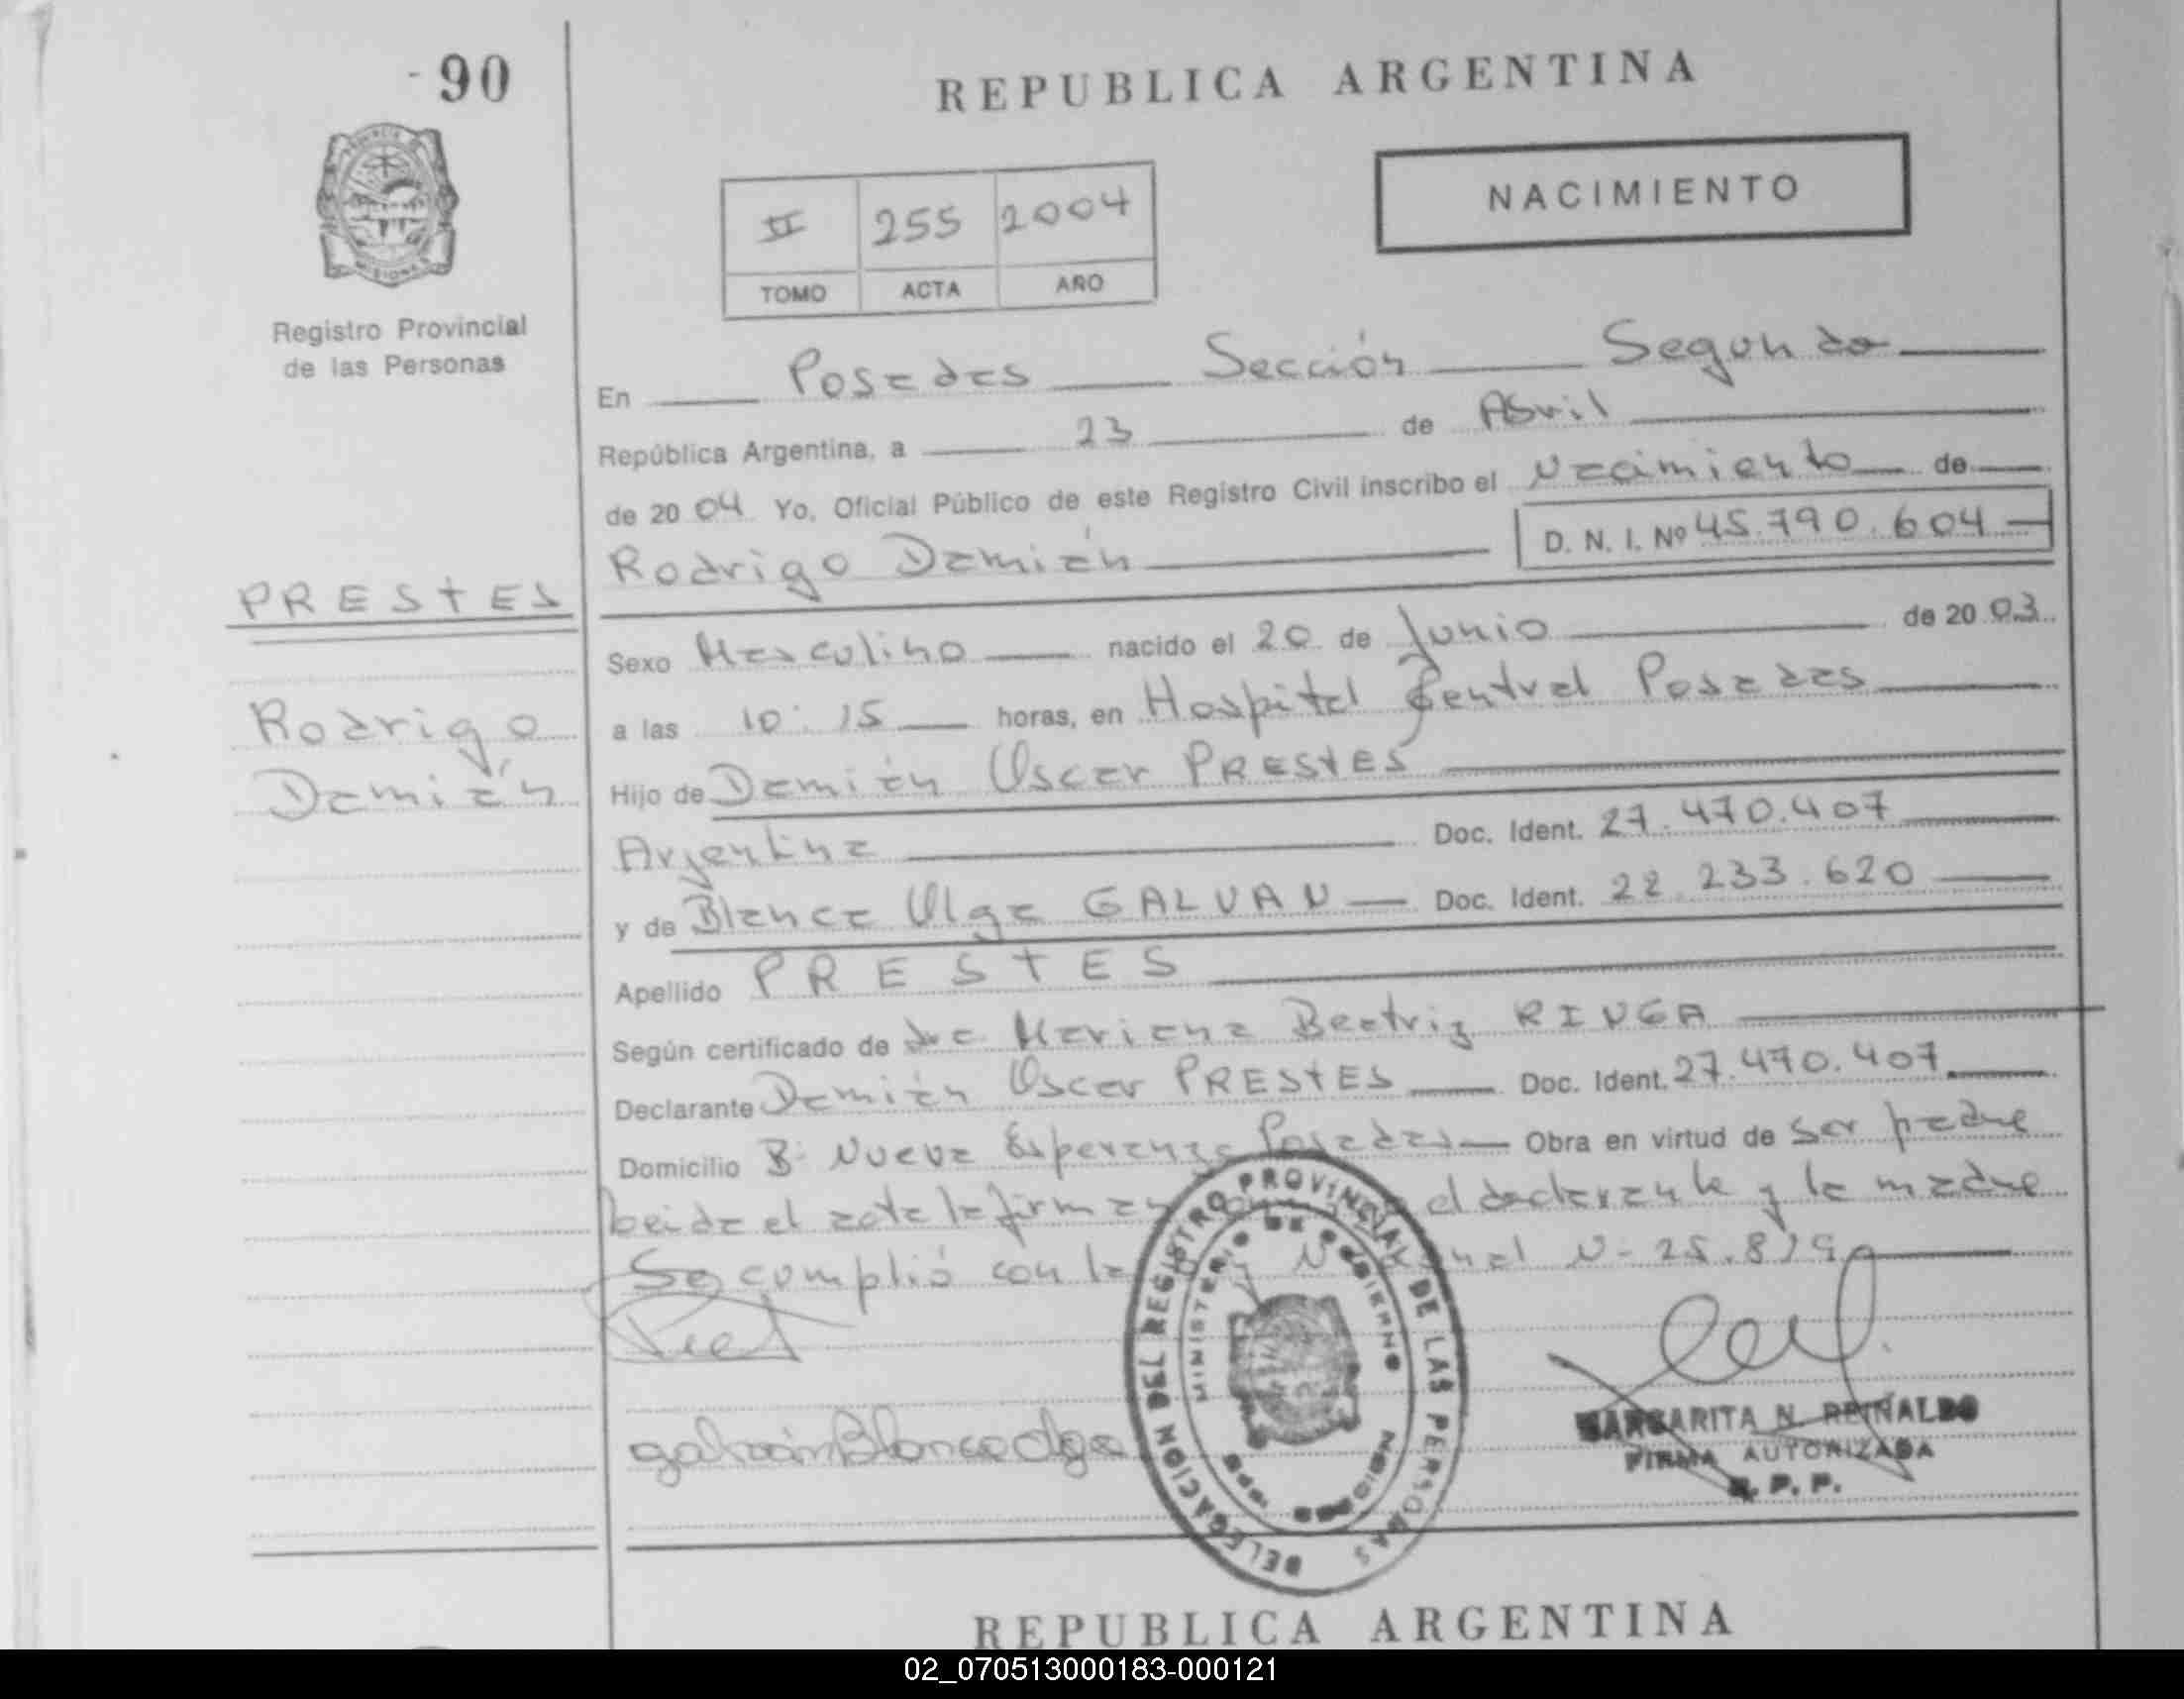 - 90
REPUBLICA ARGENTINA
NACIMIENTO
II 255 2004
TOMO ACTA AÑO
Registro Provincial
de las Personas
En Posadas Sección Segunda
República Argentina, a 23 de Abril
de 2004 Yo, Oficial Público de este Registro Civil inscribo el Nacimiento de
Rodrigo Damián D. N. I. Nº 45.790.604
PRESTES
Rodrigo
Damián
Sexo Masculino nacido el 20 de Junio de 2003
a las 10:15 horas, en Hospital Central Posadas
Hijo de Damián Oscar PRESTES
Argentina Doc. Ident. 27.470.407
y de Blanca Olga GALVAN Doc. Ident. 22.233.620
Apellido PRESTES
Según certificado de Mariana Beatriz RINGA
Declarante Damián Oscar PRESTES Doc. Ident. 27.470.407
Domicilio Bº Nueva Esperanza Posadas Obra en virtud de ser padre
leida el acta la firman el declarante y la madre
Se cumplió con la Ley Nacional Nº 25.819
galván Blanca olga
DELEGACION DEL REGISTRO PROVINCIAL DE LAS PERSONAS
MINISTERIO DE GOBIERNO
MARGARITA N. REINALDO
FIRMA AUTORIZADA
R. P. P.
REPUBLICA ARGENTINA
02_070513000183-000121